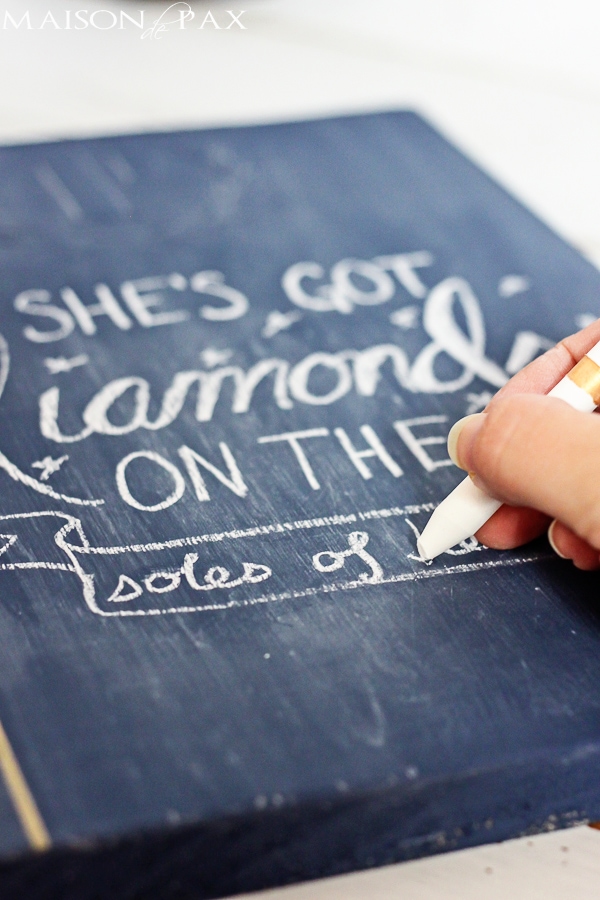 MAISON de PAX
SHE'S GOT
iamond
ON THE
soles of